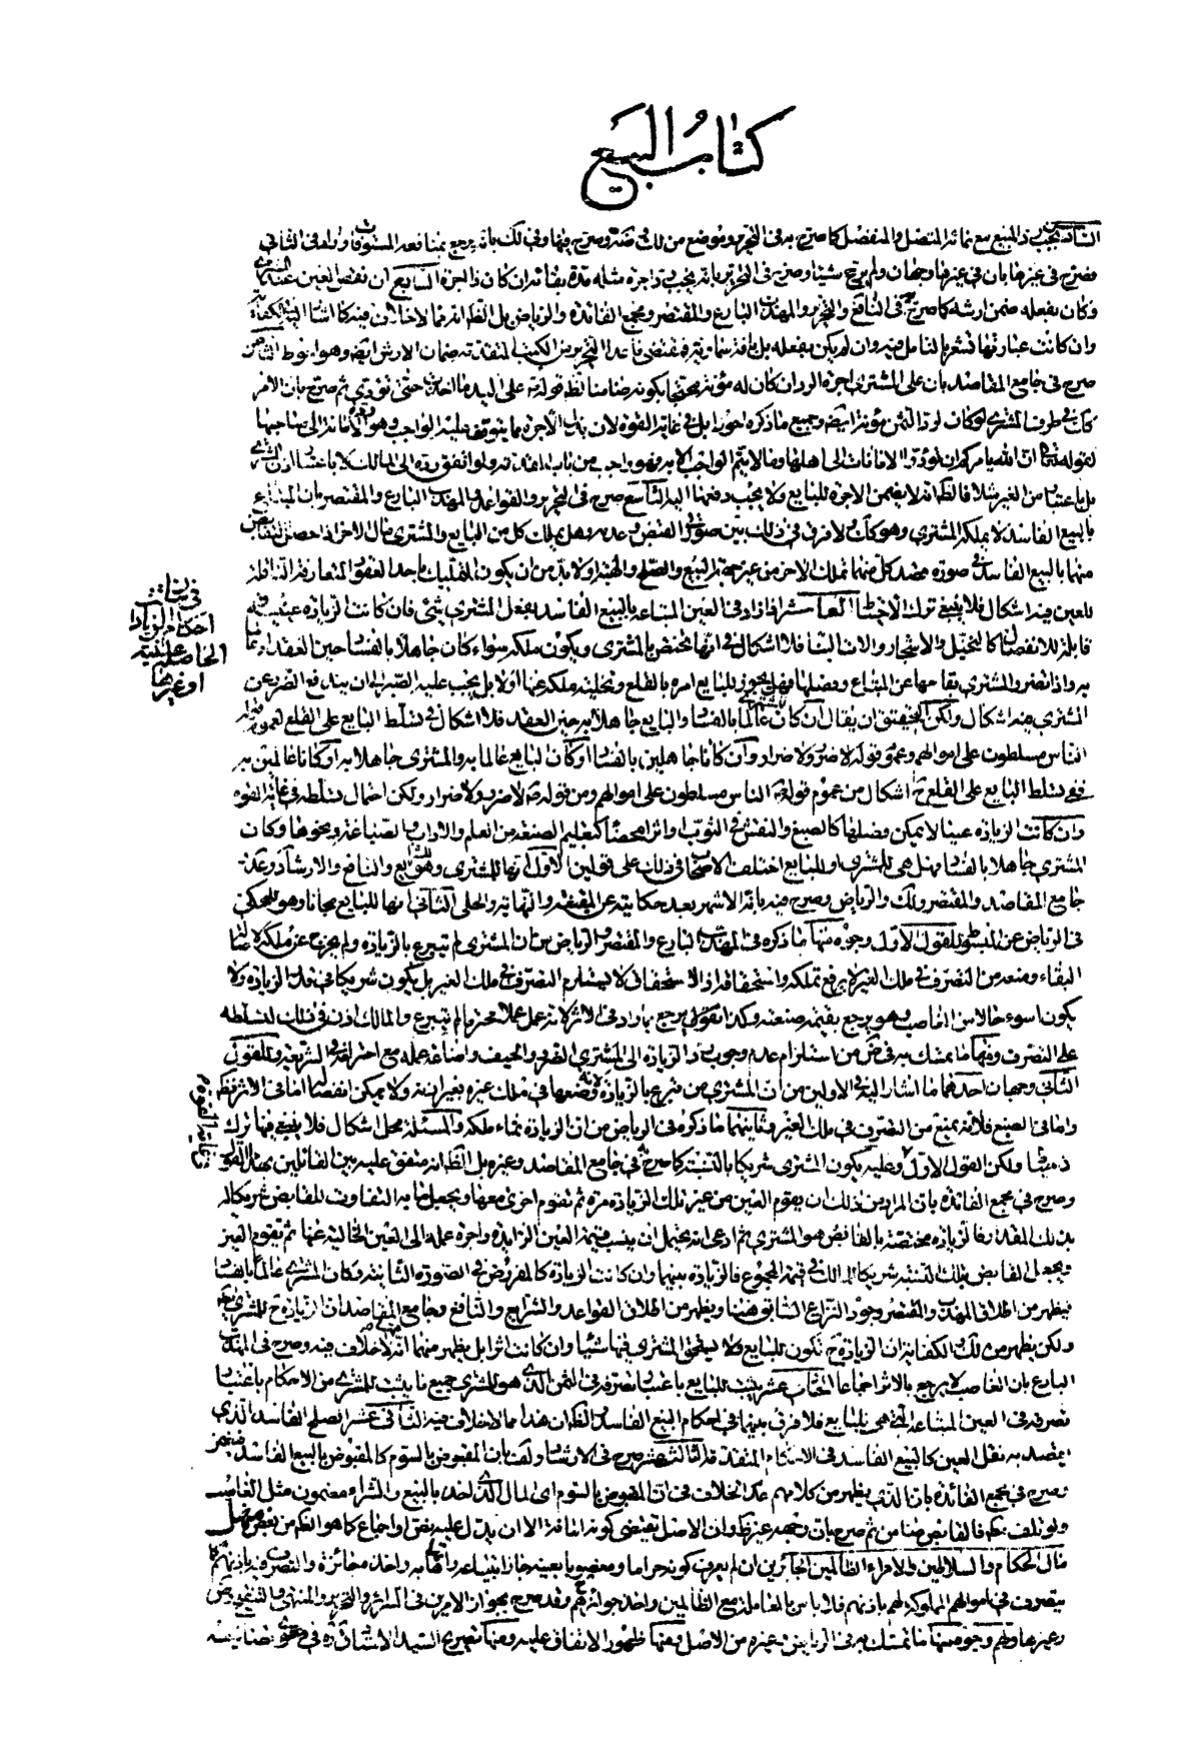 كتاب البيع
السادس يجب رد المبيع مع نمائه المتصل والمنفصل كما صرح به في التحرير وموضع من لك في ضة وصرح فيها وفي لك بانه يرجع بمنافعه المستوفاة وزاد في الثاني
فصرح في غيرها بان في غيرها وجهان ولم يرجح شيئا وصرح في التحرير بانه يجب رد اجرة مثله مدة بقائه ان كان ذا اجرة السابع ان نقص العين عند المشتري
وكان بفعله ضمن ارشه كما صرح في النافع والتحرير والمهذب البارع والمقتصر ومجمع الفائدة والرياض بل الظ انه مما لا خلاف فيه كما اشار اليه في الكفاية
وان كانت عبارتها تشعر بالتامل فيه وان لم يكن بفعله بل بافة سماوية فمقتضى ما عدا التحرير من الكتب المتقدمة ضمان الارش ايضا وهو احوط الثامن
صرح في جامع المقاصد بان على المشتري اجرة الرد ان كان له مؤنة محتجا بكونه ضامنا لظ قوله ص على اليد ما اخذت حتى تؤدي ثم صرح بان الامر
كك في طرف المشتري لو كان لرد الثمن مؤنة ايضا وجميع ما ذكره احوط بل في غاية القوة لان بذل الاجرة مما يتوقف عليه الواجب وهو رد الامانة الى صاحبها
لقوله تعالى ان الله يامركم ان تؤدوا الامانات الى اهلها وما لا يتم الواجب الا به فهو واجب من باب المقدمة ولو اتفق رده الى المالك لا باعتبار اذن المشتري
بل باعتبار من الغير مثلا فالظ انه لا يضمن الاجرة للبايع ولا يجب دفعها اليه التاسع صرح في التحرير والقواعد والمهذب البارع والمقتصر بان المبتاع
بالبيع الفاسد لا يملكه المشتري وهو كك ولا فرق في ذلك بين صورتي القبض وعدمه وهل يملك كل من البايع والمشتري مال الاخر اذا حصل التقابض
منهما بالبيع الفاسد في صورة قصد كل منهما تملك الاخر من غير جهة البيع والصلح والهبة او لا بد من ان يكون التمليك باحد العقود المتعارفة الناقلة
للعين فيه اشكال فلا ينبغي ترك الاحتياط العاشر اذا زاد في العين المبتاعة بالبيع الفاسد بفعل المشتري شيء فان كانت الزيادة عينية
قابلة للانفصال كالنخيل والاشجار والات البناء فلا اشكال في انها تختص بالمشتري ويكون ملكه سواء كان جاهلا بالفساد حين العقد او عالما
به واذا تضرر المشتري بقاءها عن المبتاع وفصلها فهل يجوز للبايع امره بالقلع وتخلية ملكه عنها او لا بل يجب عليه الصبر الى ان يندفع الضرر عن
المشتري فيه اشكال ولكن التحقيق ان يقال ان كان المشتري عالما بالفساد والبايع جاهلا به حين العقد فلا اشكال في تسلط البايع على القلع لعموم قوله
الناس مسلطون على اموالهم وعموم قوله لا ضرر ولا ضرار وان كانا جاهلين بالفساد او كان البايع عالما به والمشتري جاهلا به او كانا عالمين به
ففي تسلط البايع على القلع ح اشكال من عموم قوله ص الناس مسلطون على اموالهم ومن قوله ص لا ضرر ولا ضرار ولكن احتمال تسلطه في غاية القوة
وان كانت الزيادة عينا لا يمكن فصلها كالصبغ والنقش في الثوب او اثرا محضا كتعليم الصنعة من العلم والاداب والصياغة ونحوها وكان
المشتري جاهلا بالفساد فهل هي للمشتري او للبايع اختلف الاصحاب في ذلك على قولين الاول انها للمشتري وهو للشرايع والنافع والارشاد وعد
جامع المقاصد والمقتصر ولك والرياض وصرح فيه بانه الاشهر بعد حكايته عن المقنعة والنهاية والحلي الثاني انها للبايع مجانا وهو المحكي
في الرياض عن المبسوط للقول الاول وجوه منها ما ذكره في المهذب البارع والمقتصر والرياض من ان المشتري لم يتبرع بالزيادة ولم يخرج عن ملكه
البقاء ومنعه من التصرف في ملك الغير لا يرفع تملكه واستحقاقه اذ الاستحقاق لا يستلزم التصرف في ملك الغير بل يكون شريكا في قدر الزيادة ولا
يكون اسوء حالا من الغاصب وهو يرجع بقيمة صنعته وكذا نقول يرجع بما زاد في الاثر لانه عمل عملا محترما لم يتبرع والمالك اذن في ذلك لتسلطه
على التصرف ومنها ما تمسك به في ض من استلزام عدم وجوب رد الزيادة الى المشتري الضرر والحيف واضاعة عمله مع احترامه في الشريعة وللقول
الثاني وجهان احدهما ما اشار اليه في الاولين من ان المشتري من متبرع بالزيادة لوضعها في ملك غيره بغير اذنه ولا يمكن انفصالها اما في الاثر فظ
واما في الصبغ فلانه يمتنع من التصرف في ملك الغير وثانيهما ما ذكره في الرياض من ان الزيادة نماء ملكه والمسئلة محل اشكال فلا ينبغي فيها ترك
ولكن القول الاول وعليه يكون المشتري شريكا بالنسبة كما صرح في جامع المقاصد وغيره بل الظ انه متفق عليه بين القائلين بهذا القول
وصرح في مجمع الفائدة بان المراد من ذلك ان يقوم العين من غير تلك الزيادة مرة ثم تقوم اخرى معها ويجعل ما به التفاوت للقابض شريكا له
بذلك المقدار فالزيادة مختصة بالقابض هو المشتري ثم ادعى انه يحتمل ان ينسب قيمة العين الزايدة واجرة عمله الى العين الخالية عنها ثم تقوم العين
ويجعل القابض بتلك النسبة شريكا للمالك في قيمة المجموع فالزيادة بينهما وان كانت الزيادة كالمفروض في الصورة الثانية وكان المشتري عالما بالفساد
فيظهر من اطلاق المهذب والمقتصر وجود النزاع السابق هنا ويظهر من اطلاق القواعد والشرايع والنافع وجامع المقاصد ان الزيادة ح للمشتري
ولكن يظهر من لك والكفاية ان الزيادة ح تكون للبايع ولا يستحق المشتري فيها شيئا وان كانت اثرا بل يظهر منهما انه لا خلاف فيه وصرح في المهذب
البارع بان الغاصب لا يرجع بالاثر اجماعا الحادي عشر يثبت للبايع باعتبار تصرفه في الثمن الذي هو للمشتري جميع ما يثبت للمشتري من الاحكام باعتبار
تصرفه في العين المبتاعة التي هي للبايع فلا فرق بينهما في احكام البيع الفاسد والظ ان هذا مما لا خلاف فيه الثاني عشر الصلح الفاسد الذي
يقصد به نقل العين كالبيع الفاسد في الاحكام المتقدمة الثالث عشر صرح في الارشاد ولك بان المقبوض بالسوم كالمقبوض بالبيع الفاسد فيضمن
وصرح في مجمع الفائدة بان الذي يظهر من كلامهم عدم الخلاف في ان المقبوض بالسوم اي المال الذي اخذ بالبيع والشراء مضمون مثل الغاصب
ولو تلف بيده فالقابض ضامن ثم صرح بان وجهه غير ظ وان الاصل يقتضي كونه امانة الا ان يدل عليه نص او اجماع كما هو الظ من بعض منهل
مال الحكام والسلاطين والامراء الظالمين الجائرين ان لم يعرف كونه حراما ومغصوبا بعينه جاز ابتياعه واتهابه واخذه مجانزة والتصرف فيه باذنهم كما
يتصرف في اموالهم المملوكة لهم باذنهم فلا باس بالمعاملة مع الظالمين واخذ جوائزهم وقد صرح بجواز الامرين في السرائر والتحرير والمنتهى والتنقيح وض
وغيرها ولهم وجوه منها ما تمسك به في الرياض وغيره من الاصل ومنها ظهور الاتفاق عليه ومنها تصريح السيد الاستاذ قده في دعوى
في بيان
احكام الزيادة
الحاصلة عينية
او غيرها
في غاية القوة